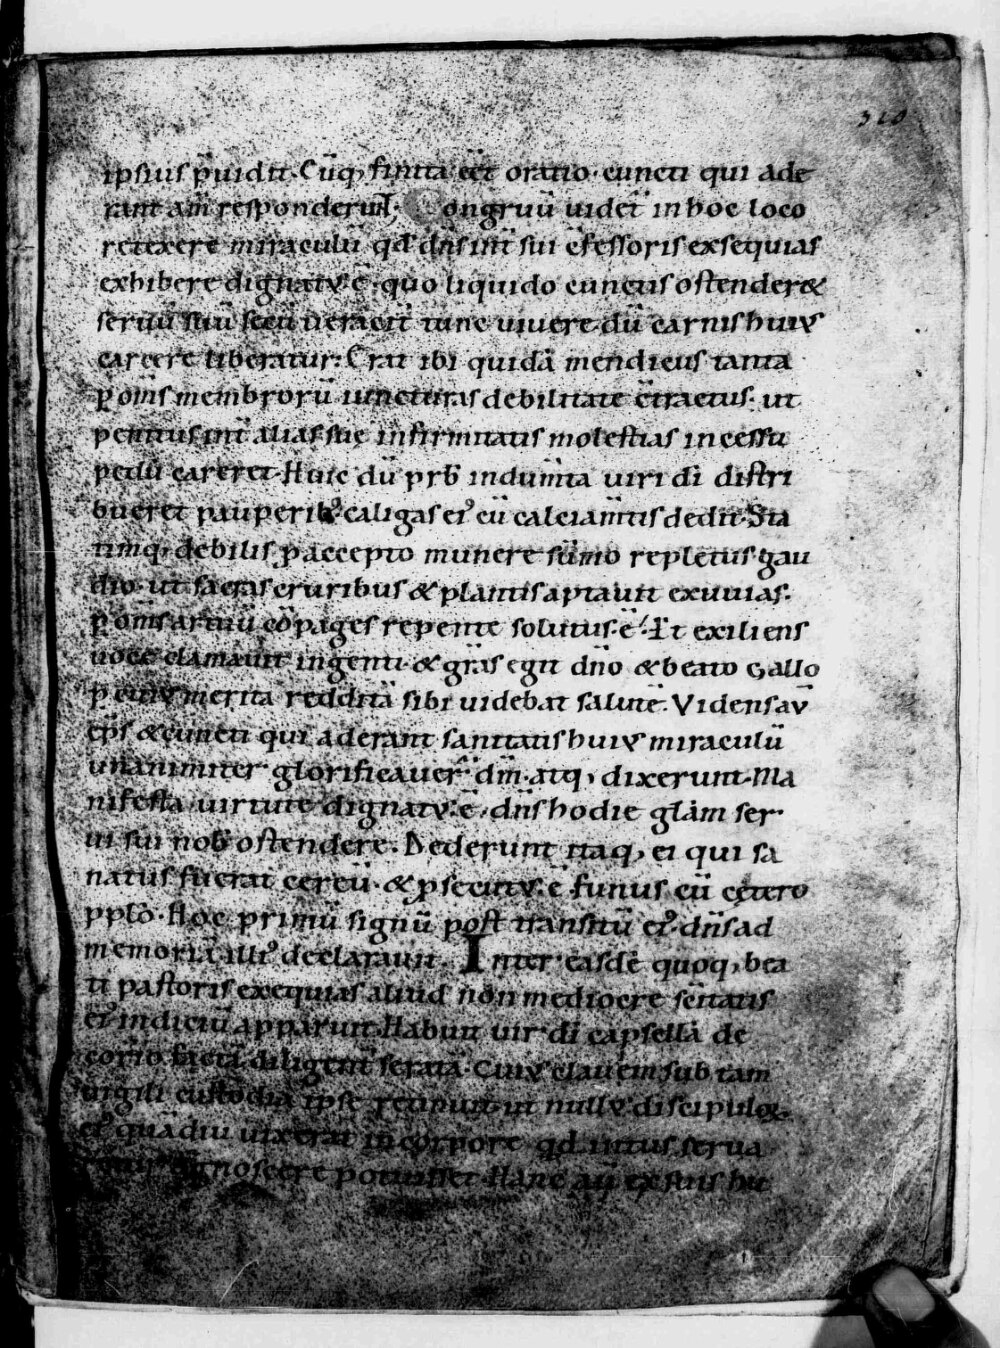 310
ipsius p̄uidit. Cūq; finita eēt oratio. cuncti qui ade
rant am̄ responderunt; Congruū uidet̄ in hoc loco
retexere miraculū qd̄ dn̄s int̄ sui c̄fessoris exsequias
exhibere dignatus ē. quo liquido cunctis ostenderet
seruū suū secū ueracit̄ tunc uiuere. dū carnis huius
carcere liberatur. Erat ibi quidā mendicus tanta
p om̄s membrorū iuncturas debilitate c̄tractus. ut
penitus int̄ alias suę infirmitatis molestias incessu
pedū careret. Huic dū prb̄ indum̄ta uiri dī distri
bueret pauperib; caligas ei' cū calciam̄tis dedit. Sta
timq; debilis p accepto munere sūmo repletus gau
dio. ut sacras cruribus & plantis aptauit exuuias.
p om̄s artuū cōpages repente solutus. ē. Et exiliens
uoce clamauit ingenti. & grās egit dn̄o & beato Gallo
p cuius merita redditā sibi uidebat salutē. Videns au̅
ep̄s & cuncti qui aderant sanitatis huius miraculū
unanimiter glorificauer̄ dm̄. atq; dixerunt. Ma
nifesta uirtute dignatus ē, dn̄s hodie glām ser
ui sui nob̄ ostendere. Dederunt itaq; ei qui sa
natus fuerat cereū. & p̱secutus. ē funus cū cetero
pplō. Hoc primū signū post transitū ei'. dn̄s ad
memoriā illi' declarauit. Inter easdē quoq; bea
ti pastoris exequias aliud non mediocre sc̄itatis
ei' indiciū apparuit. Habuit uir dī capsellā de
corio factā diligent̄ seratā. Cuius clauem sub tam
uigili custodia ipse retinuit. ut nullus discipuloꝝ
ei' quādiu uixerat in corpore qd̄ intus serua
agnoscere potuisset. Hanc aū ex suis hu